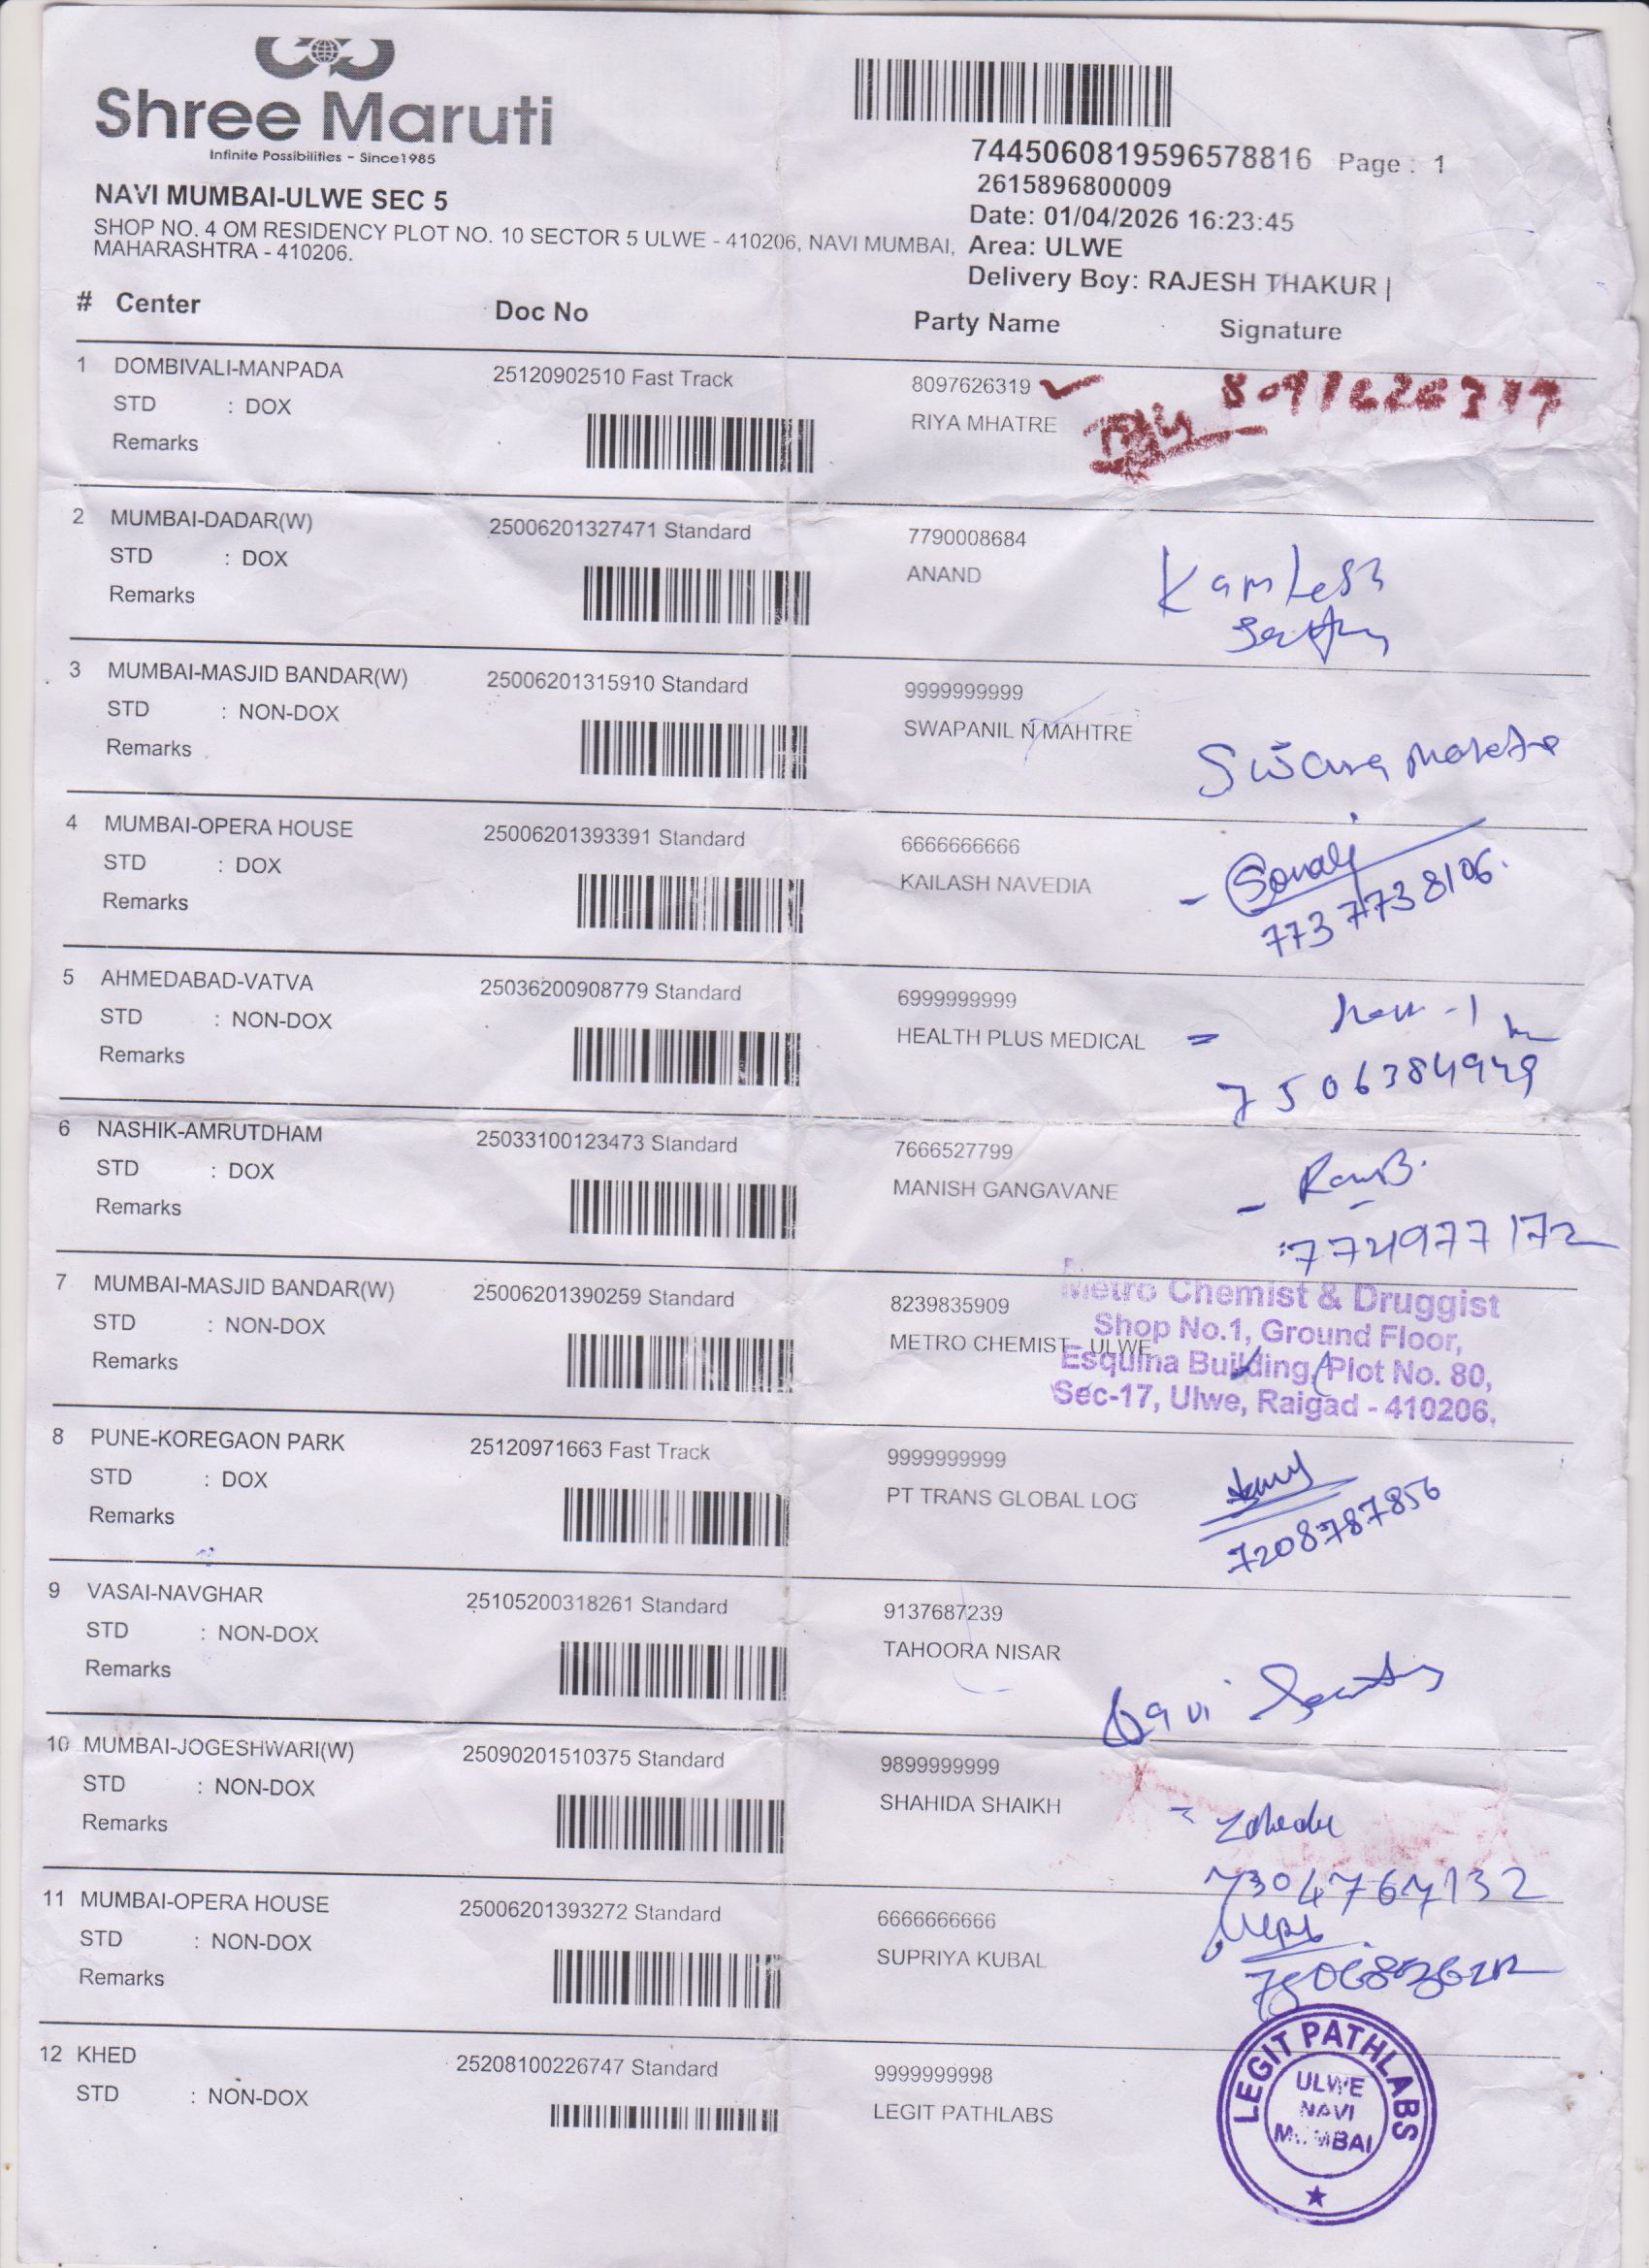 Shree Maruti
Infinite Possibilities - Since1985
NAVI MUMBAI-ULWE SEC 5
SHOP NO. 4 OM RESIDENCY PLOT NO. 10 SECTOR 5 ULWE - 410206, NAVI MUMBAI,
MAHARASHTRA - 410206.
7445060819596578816 Page : 1
2615896800009
Date: 01/04/2026 16:23:45
Area: ULWE
Delivery Boy: RAJESH THAKUR |
# Center Doc No Party Name Signature
1 DOMBIVALI-MANPADA 25120902510 Fast Track 8097626319
STD : DOX RIYA MHATRE
Remarks
2 MUMBAI-DADAR(W) 25006201327471 Standard 7790008684
STD : DOX ANAND Kamlesh
Remarks
3 MUMBAI-MASJID BANDAR(W) 25006201315910 Standard 9999999999
STD : NON-DOX SWAPANIL N MAHTRE
Remarks
4 MUMBAI-OPERA HOUSE 25006201393391 Standard 6666666666
STD : DOX KAILASH NAVEDIA Sonali
Remarks 7737738106.
5 AHMEDABAD-VATVA 25036200908779 Standard 6999999999
STD : NON-DOX HEALTH PLUS MEDICAL
Remarks 7506384949
6 NASHIK-AMRUTDHAM 25033100123473 Standard 7666527799
STD : DOX MANISH GANGAVANE
Remarks
7 MUMBAI-MASJID BANDAR(W) 25006201390259 Standard 8239835909
STD : NON-DOX METRO CHEMIST - ULWE
Remarks
Metro Chemist & Druggist
Shop No.1, Ground Floor,
Esquina Building, Plot No. 80,
Sec-17, Ulwe, Raigad - 410206.
8 PUNE-KOREGAON PARK 25120971663 Fast Track 9999999999
STD : DOX PT TRANS GLOBAL LOG
Remarks 7208787856
9 VASAI-NAVGHAR 25105200318261 Standard 9137687239
STD : NON-DOX TAHOORA NISAR
Remarks
10 MUMBAI-JOGESHWARI(W) 25090201510375 Standard 9899999999
STD : NON-DOX SHAHIDA SHAIKH
Remarks
7304767132
11 MUMBAI-OPERA HOUSE 25006201393272 Standard 6666666666
STD : NON-DOX SUPRIYA KUBAL
Remarks
12 KHED 25208100226747 Standard 9999999998
STD : NON-DOX LEGIT PATHLABS
LEGIT PATHLABS
ULWE
NAVI
MUMBAI